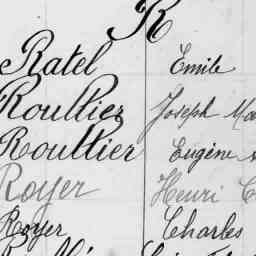 R
Ratel Emile
Roullier Joseph
Roullier Eugène
Royer Henri
Royer Charles